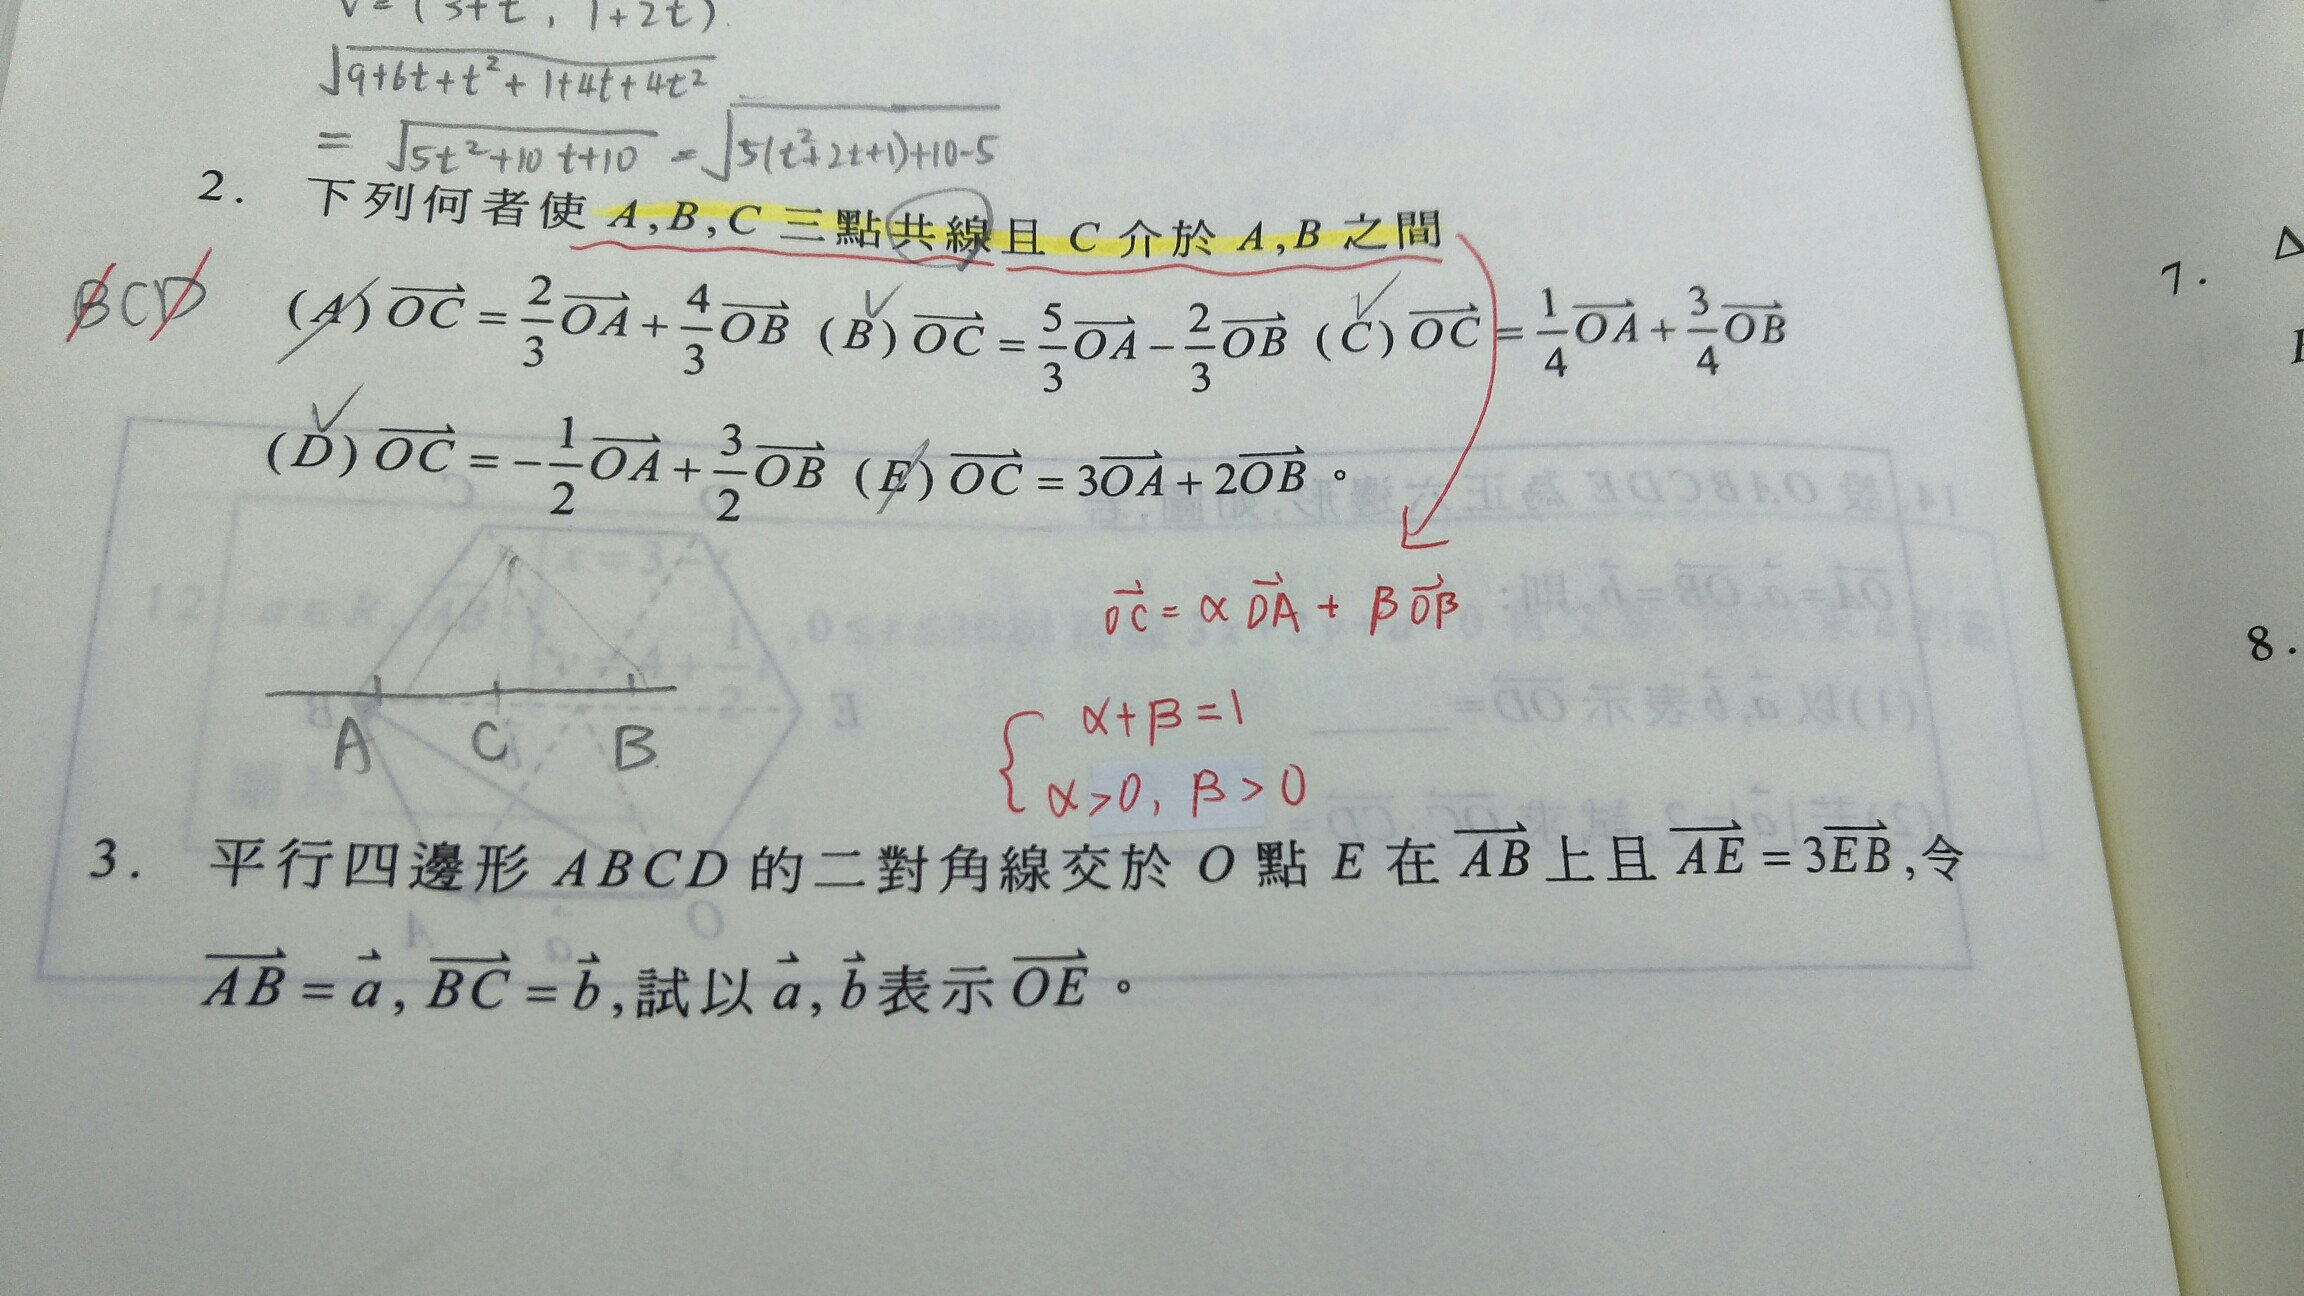 V = (3+t, 1+2t)
√(9+6t+t²+1+4t+4t²)
= √(5t²+10t+10) = √(5(t²+2t+1)+10-5)
2. 下列何者使 A,B,C 三點共線且 C 介於 A,B 之間
BCD
(A) \overrightarrow{OC} = \frac{2}{3}\overrightarrow{OA} + \frac{4}{3}\overrightarrow{OB} (B) \overrightarrow{OC} = \frac{5}{3}\overrightarrow{OA} - \frac{2}{3}\overrightarrow{OB} (C) \overrightarrow{OC} = \frac{1}{4}\overrightarrow{OA} + \frac{3}{4}\overrightarrow{OB}
(D) \overrightarrow{OC} = -\frac{1}{2}\overrightarrow{OA} + \frac{3}{2}\overrightarrow{OB} (E) \overrightarrow{OC} = 3\overrightarrow{OA} + 2\overrightarrow{OB}。
\overrightarrow{OC} = α\overrightarrow{OA} + β\overrightarrow{OB}
α+β=1
α>0, β>0
A C B
3. 平行四邊形 ABCD 的二對角線交於 O 點 E 在 \overrightarrow{AB} 上且 \overrightarrow{AE} = 3\overrightarrow{EB},令
\overrightarrow{AB} = \vec{a}, \overrightarrow{BC} = \vec{b},試以 \vec{a}, \vec{b} 表示 \overrightarrow{OE}。
7.
8.